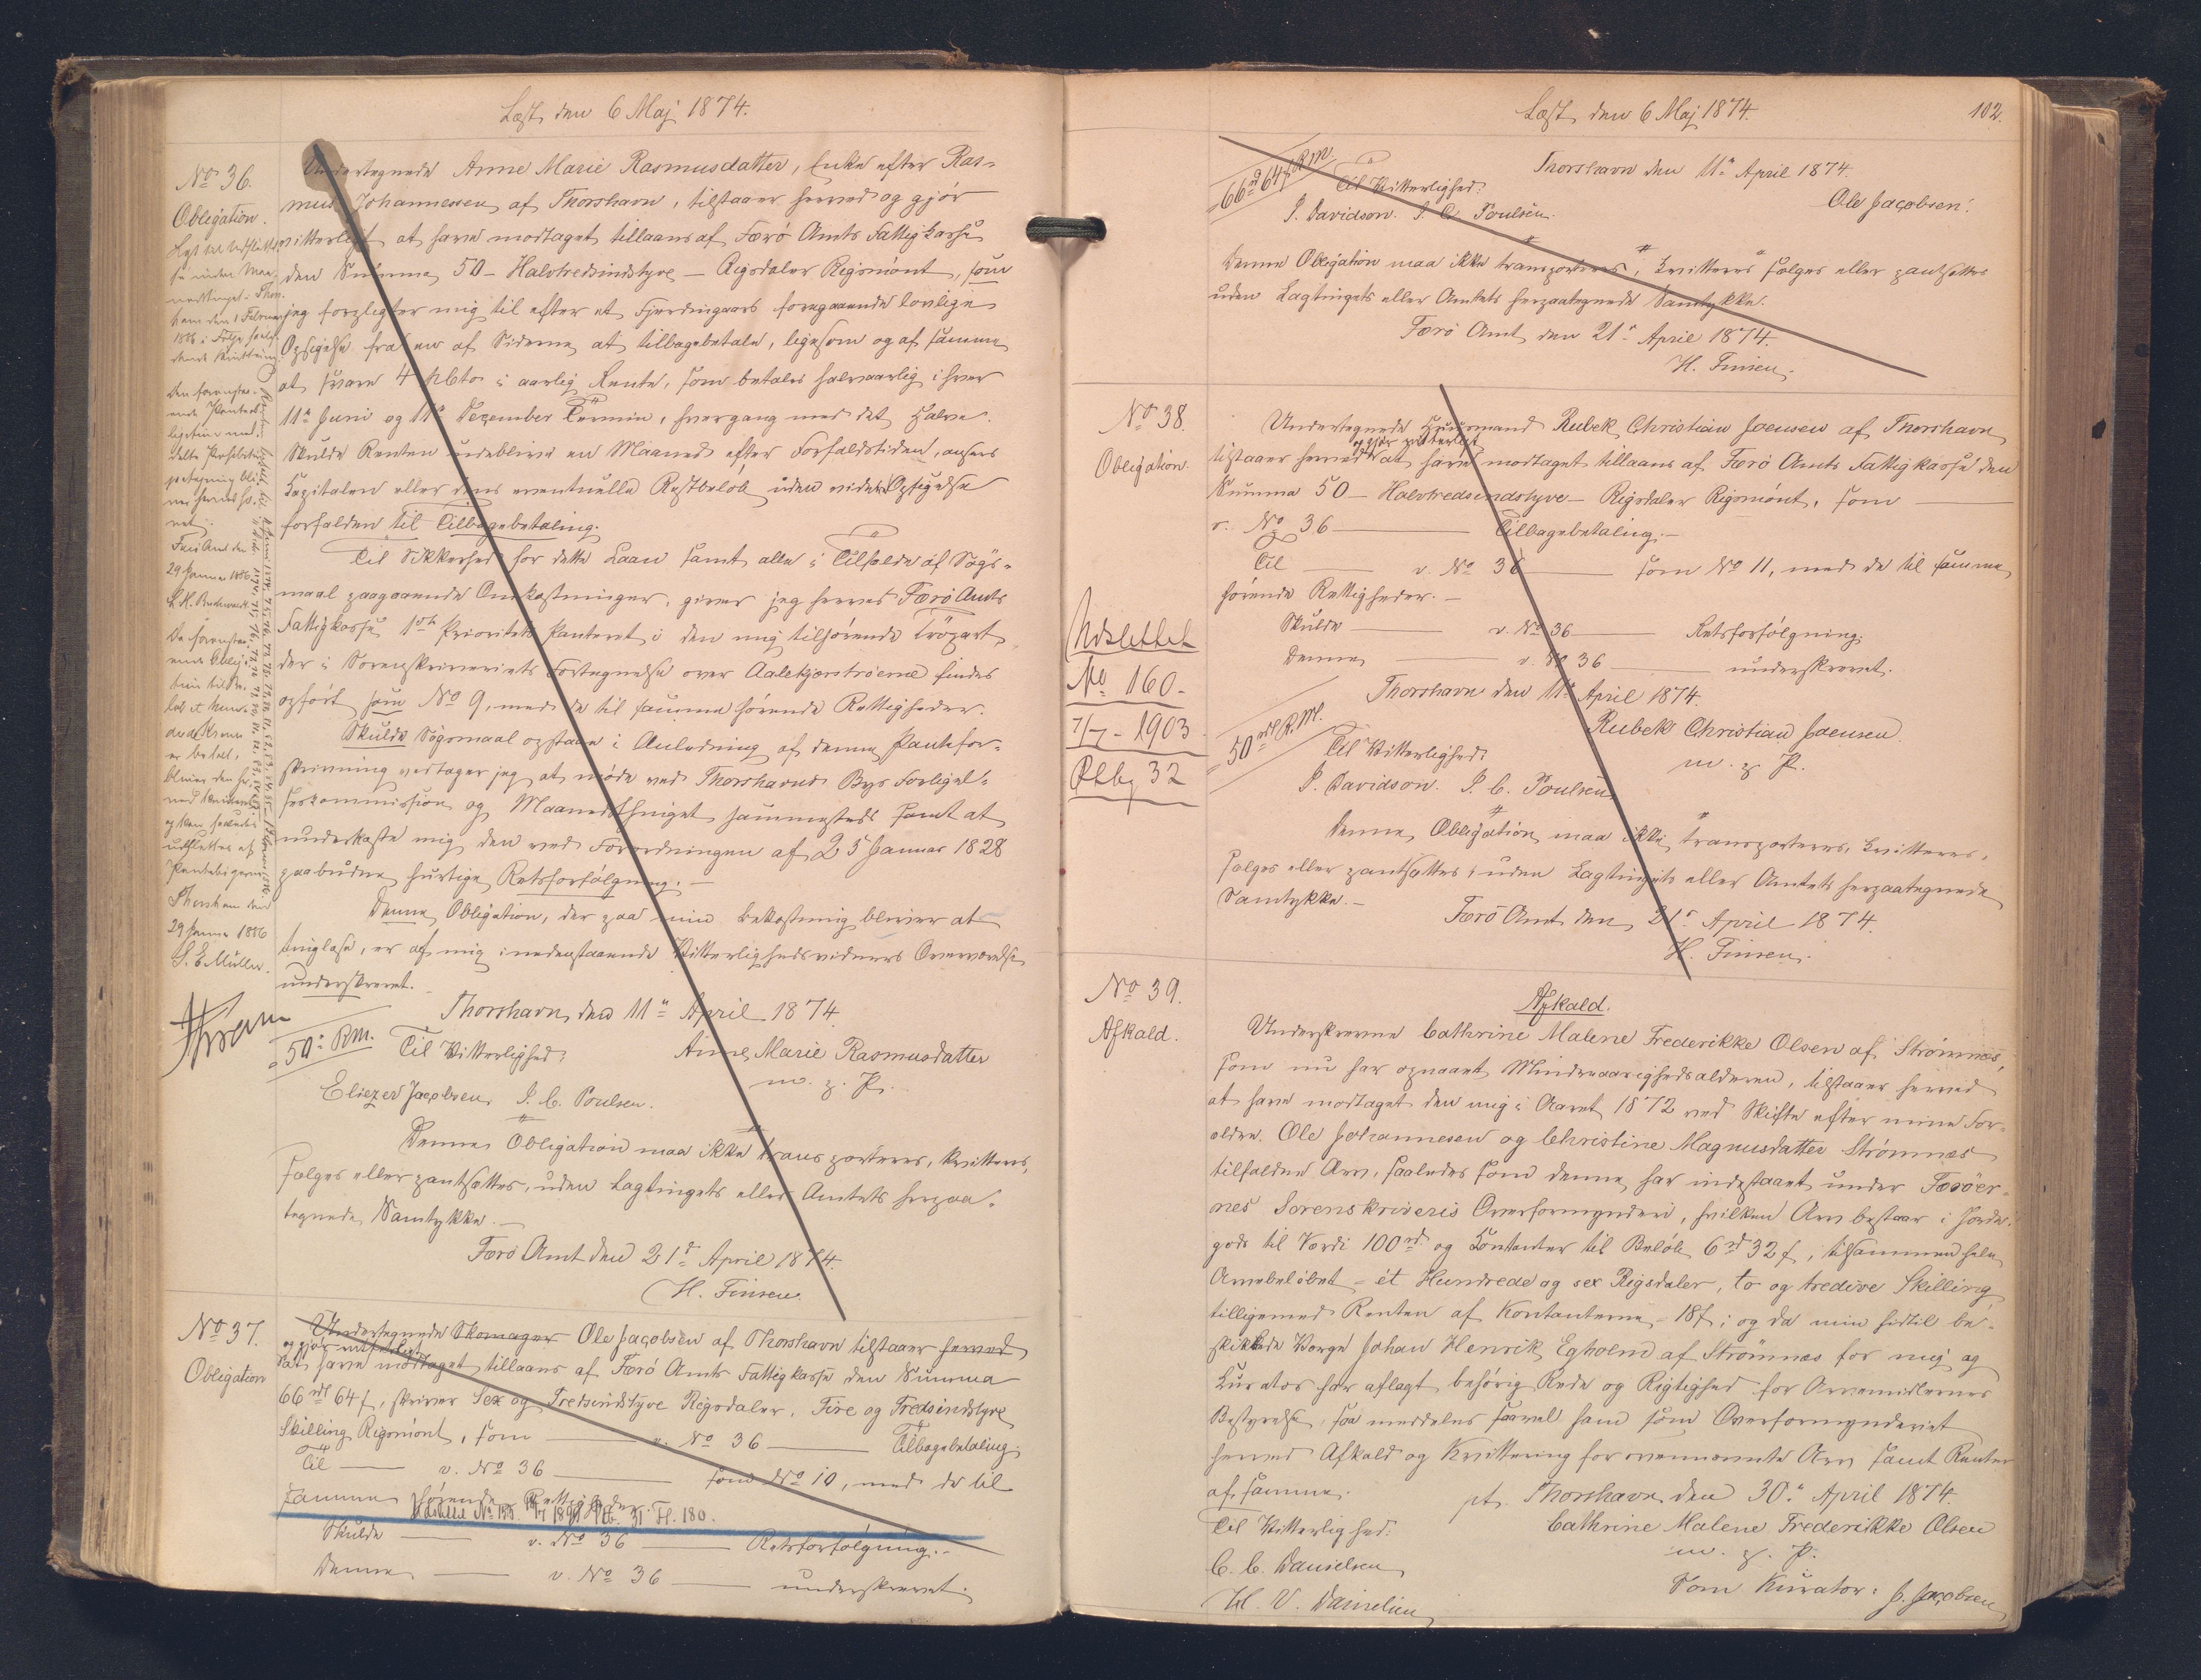 Læst den 6 Maj 1874.
No 36.
Obligation.
Undertegnede Anne Marie Rasmusdatter, Enke efter Ras-
mus Johannessen af Thorshavn, tilstaaer herved og gjør
vitterligt at have modtaget tillaans af Færö Amts Fattigkasse
den Summa 50 - Halvtredsindstyve - Rigsdaler Rigsmönt, som
jeg forpligter mig til efter et Fjerdingaars foregaaende lovlige
Opsigelse fra en af Siderne at tilbagebetale, ligesom og af samme
at svare 4 pCto i aarlig Rente, som betales halvaarlig i hver
11te Juni og 11te December Termin, hvergang med det Halve.
Skulde Renten udeblive en Maaned efter Forfaldstiden, ansees
Capitalen eller dens eventuelle Restbeløb uden videre Opsigelse
forfalden til Tilbagebetaling.
Til Sikkerhed for dette Laan samt alle i Tilfælde af Søgs-
maal paagaaende Omkostninger, giver jeg herved Færö Amts
Fattigkasse 1ste Prioritets Panteret i den mig tilhørende Tröpart,
der i Sorenskriveriets Fortegnelse over Aalekjærströerne findes
opført som No 9, med de til samme hørende Rettigheder.
Skulde Søgsmaal opstaae i Anledning af denne Pantefor-
skrivning vedtager jeg at møde ved Thorshavns Byes Forligel-
seskommission og Maanedsthinget sammesteds samt at
underkaste mig den ved Forordningen af 25 Januar 1828
paabudne hurtige Retsforfølgning.-
Denne Obligation, der paa min Bekostning bliver at
tinglæse, er af mig i nedenstaaende Vitterlighedsvidners Overværelse
underskrevet.
Thorshavn, den 11te April 1874.
50 RM. Til Vitterlighed: Anne Marie Rasmusdatter
m. p. P.
Eliezer Jacobsen. P. C. Poulsen.
Denne Obligation maa ikke transporteres, kvitteres,
sælges eller pantsættes, uden Lagtingets eller Amtets herpaa-
tegnede Samtykke.-
Færö Amt den 21de April 1874.
H. Finsen.
den 1 Februar
1886 i Følge
Den foranstaa-
ende Panteob-
ligation med-
Færö Amt den
29 Januar 1886
er betalt,
bliver den her-
ved
udslettes af
Thorshavn den
29 Januar 1886
S. E. Müller.
No 37.
Obligation
Undertegnede Skomager Ole Jacobsen af Thorshavn tilstaaer herved
og gjør vitterligt
at have modtaget tillaans af Færö Amts Fattigkasse den Summa
66 rd 64 s, skriver Sex og Tredsindstyve Rigsdaler, Fire og Tredsindstyve
Skilling Rigsmönt, som — v. No 36 — Tilbagebetaling.
Til — v. No 36 — som No 10, med de til
samme hørende Rettigheder.
Udslettet No 188 1899 Plb. 31 Fl. 180.
Skulde — v. No 36 — Retsforfølgning.-
Denne — v. No 36 — underskrevet.
Læst den 6 Maj 1874.
102.
Thorshavn den 11te April 1874.
66 rd 64 s R.M. Til Vitterlighed:
Ole Jacobsen.
P. Davidson. P. C. Poulsen.
Denne Obligation maa ikke transporteres, kvitteres sælges eller pantsættes
uden Lagtingets eller Amtets herpaategnede Samtykke.
Færö Amt, den 21de April 1874.
H. Finsen.
No 38.
Obligation.
Undertegnede Huusmand Rubek Christian Joensen af Thorshavn
og gjør vitterligt
tilstaaer herved at have modtaget tillaans af Færö Amts Fattigkasse den
Summa 50 - Halvtredsindstyve - Rigsdaler Rigsmönt, som —
v. No 36 — Tilbagebetaling.-
Til — v. No 36 — som No 11, med de til samme
hørende Rettigheder.-
Skulde — v. No 36 — Retsforfølgning.
Denne — v. No 36 — underskrevet.
Thorshavn den 11te April 1874.
Rubek Christian Joensen.
m. p. P.
50 rd R.M. Til Vitterlighed:
P. Davidson. P. C. Poulsen.
Denne Obligation maa ikke transporteres, kvitteres,
sælges eller pantsættes, uden Lagtingets eller Amtets herpaategnede
Samtykke.-
Færö Amt, den 21de April 1874.
H. Finsen.
Udslettet
No 160-
7/7 - 1903
Ptbg 32
No 39.
Afkald.
Afkald.
Underskrevne Cathrine Malene Frederikke Olsen af Strømnæs,
som nu har opnaaet Mindreaarighedsalderen, tilstaaer herved
at have modtaget den mig i Aaret 1872 ved Skifte efter mine For-
ældre Ole Johannesen og Christine Magnusdatter Strømnæs
tilfaldne Arv, saaledes som denne har indestaaet under Færöer-
nes Sorenskriveris Overformynderi, hvilken Arv bestaar i Jorde-
gods til Værdi 100 rd og Contanter til Beløb 6 rd 32 s, tilsammen hele
Arvebeløbet - ét Hundrede og sex Rigsdaler, to og tredive Skilling
tilligemed Renten af Kontanterne - 18 s; og da min hidtil be-
skikkede Værge Johan Henrik Egholm af Strömnæs for mig og
Kurator har aflagt behörig Rede og Rigtighed for Arvemidlernes
Bestyrelse, saa meddeles saavel ham som Overformynderiet
herved Afkald og Kvittering for ovennævnte Arv samt Renter
af samme.
pt. Thorshavn den 30te April 1874.
Til Vitterlighed:
Cathrine Malene Frederikke Olsen
m. p. P.
C. C. Danielsen
H. V. Danielsen
Som Kurator: J. Jacobsen